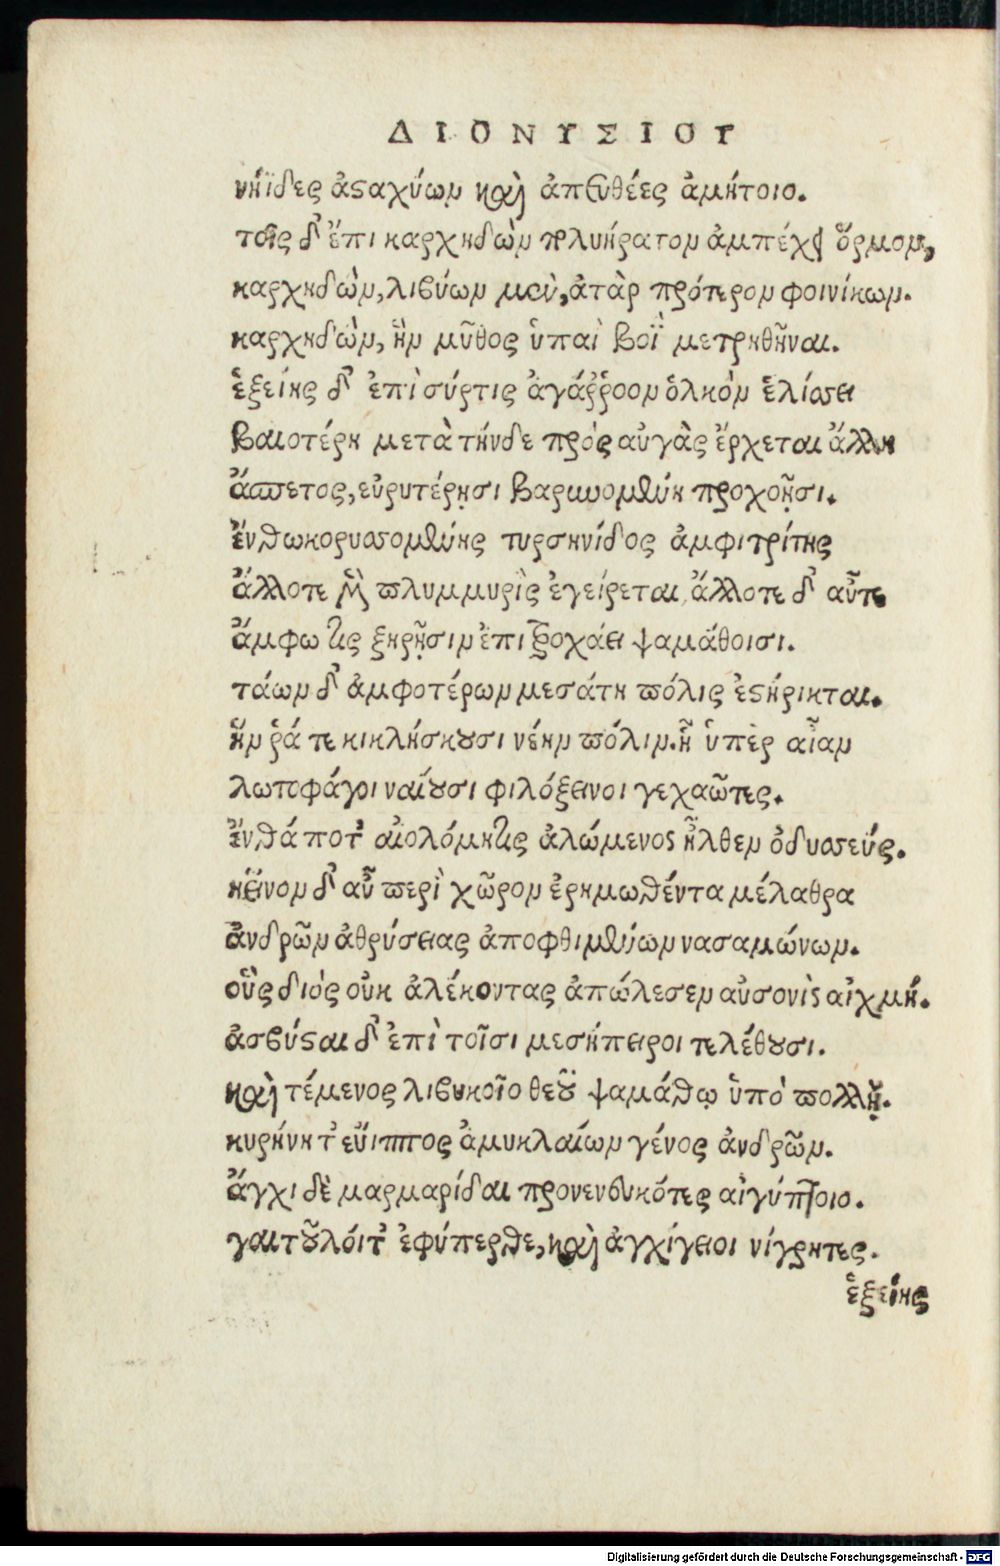 ΔΙΟΝΥΣΙΟΥ
νήϊδες ἀσταχύων καὶ ἀπευθέες ἀμήτοιο.
τοῖς δ' ἔπι καρχηδὼν πολυήρατον ἀμπέχει ὅρμον,
καρχηδὼν, λιβύων μὲν, ἀτὰρ πρότερον φοινίκων.
καρχηδὼν, ἣν μῦθος ὑπαὶ βοῒ μετρηθῆναι.
ἑξείης δ' ἐπὶ σύρτις ἀγάῤῥοον ὁλκὸν ἑλίσσει
βαιοτέρη μετὰ τήνδε πρὸς αὐγὰς ἔρχεται ἄλλη
ἄσπετος, εὐρυτέρῃσι βαρυνομένη προχοῇσι.
ἔνθα κορυσσομένης τυρσηνίδος ἀμφιτρίτης
ἄλλοτε μὲν πλυμμυρὶς ἐγείρεται, ἄλλοτε δ' αὖτε
ἄμπωτις ξηρῇσιν ἐπιτροχάει ψαμάθοισι.
τάων δ' ἀμφοτέρων μεσάτη πόλις ἐστήρικται.
ἥν ῥά τε κικλήσκουσι νέην πόλιν. ἧ ὑπὲρ αἶαν
λωτοφάγοι ναίουσι φιλόξεινοι γεγαῶτες.
ἔνθά ποτ' αἰολόμητις ἀλώμενος ἦλθεν ὀδυσσεύς.
κεῖνον δ' αὖ περὶ χῶρον ἐρημωθέντα μέλαθρα
ἀνδρῶν ἀθρήσειας ἀποφθιμένων νασαμώνων.
οὓς διὸς οὐκ ἀλέκοντας ἀπώλεσεν αὐσονὶς αἰχμή.
ἀσβύσται δ' ἐπὶ τοῖσι μεσήπειροι τελέθουσι.
καὶ τέμενος λιβυκοῖο θεοῦ ψαμάθῳ ὑπὸ πολλῇ.
κυρήνη τ' εὔιππος ἀμυκλαίων γένος ἀνδρῶν.
ἄγχι δὲ μαρμαρίδαι προνενευκότες αἰγύπτοιο.
γαιτοῦλόι τ' ἐφύπερθε, καὶ ἀγχίγειοι νίγρητες.
ἑξείης
Digitalisierung gefördert durch die Deutsche Forschungsgemeinschaft - DFG